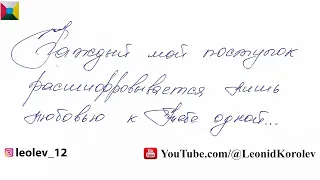 Каждый мой поступок
расшифровывается лишь
любовью к Тебе одной...
leolev_12
YouTube.com/@LeonidKorolev